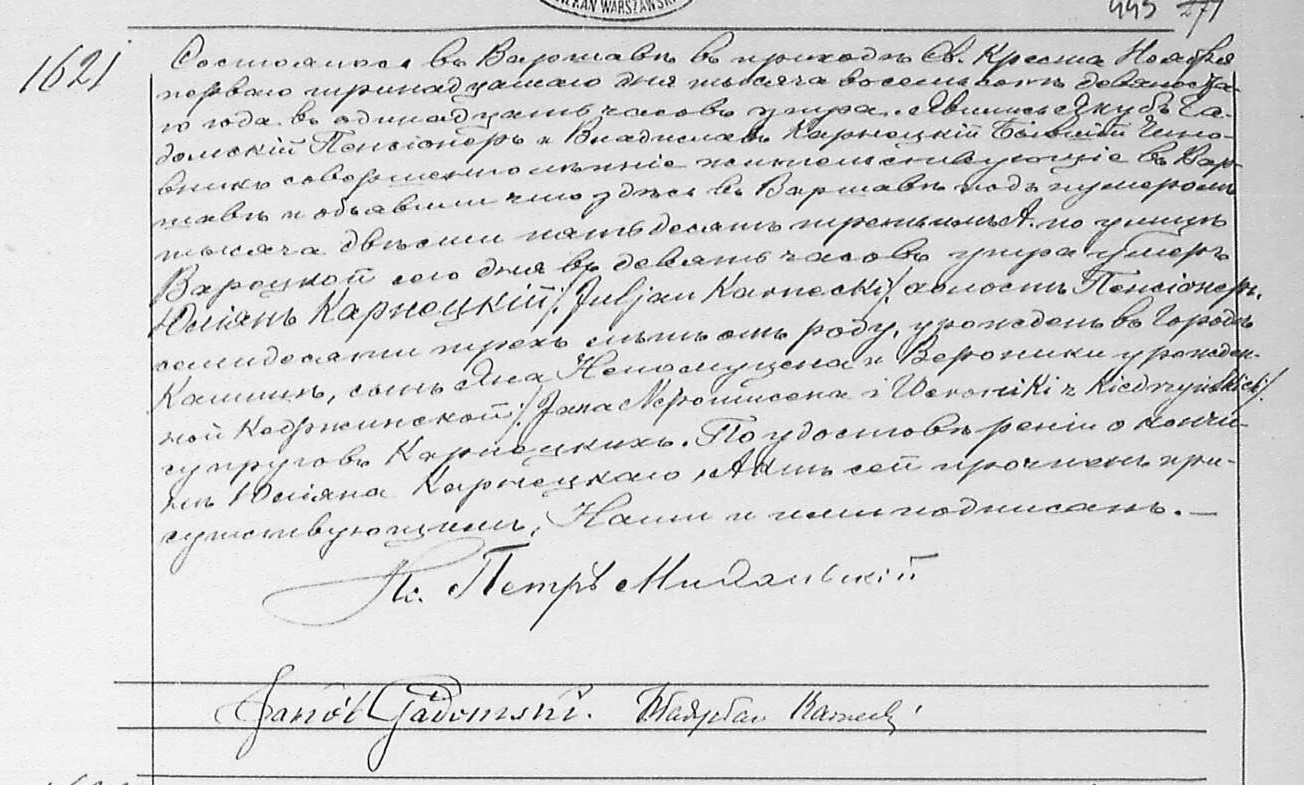 KAN WARSZAWSK
445 271
1621
Состоялось въ Варшавѣ въ приходѣ Св. Креста Ноября
перваго тринадцатаго дня тысяча восемьсотъ девяноста-
го года въ одинадцать часовъ утра. Явились Якубъ Га-
домскій Пенсіонеръ и Владиславъ Карнецкій Бывшій Чино-
вникъ совершеннолѣтніе жительствующіе въ Вар-
шавѣ и объявили что здѣсь въ Варшавѣ подъ нумеромъ
тысяча двѣсти пятьдесятъ третьимъ А. по улицѣ
Варецкой сего дня въ девять часовъ утра умеръ
Юліянъ Карнецкій /:Juljan Karnecki:/ холостъ Пенсіонеръ,
семидесяти трехъ лѣтъ отъ роду, урожденъ въ Городѣ
сынъ Яна Непомуцена и Вероники урожден-
ной Кедржинской /:Jana Nepomucena i Weroniki z Kiedrzyńskich:/
супруговъ Карнецкихъ. По удостовѣреніи о кончи-
нѣ Юліяна Карнецкаго, Актъ сей прочтенъ при-
сутствующимъ, Нами и ими подписанъ. —
Кс. Петръ
Jakób Gadomski. Władysław Karnecki